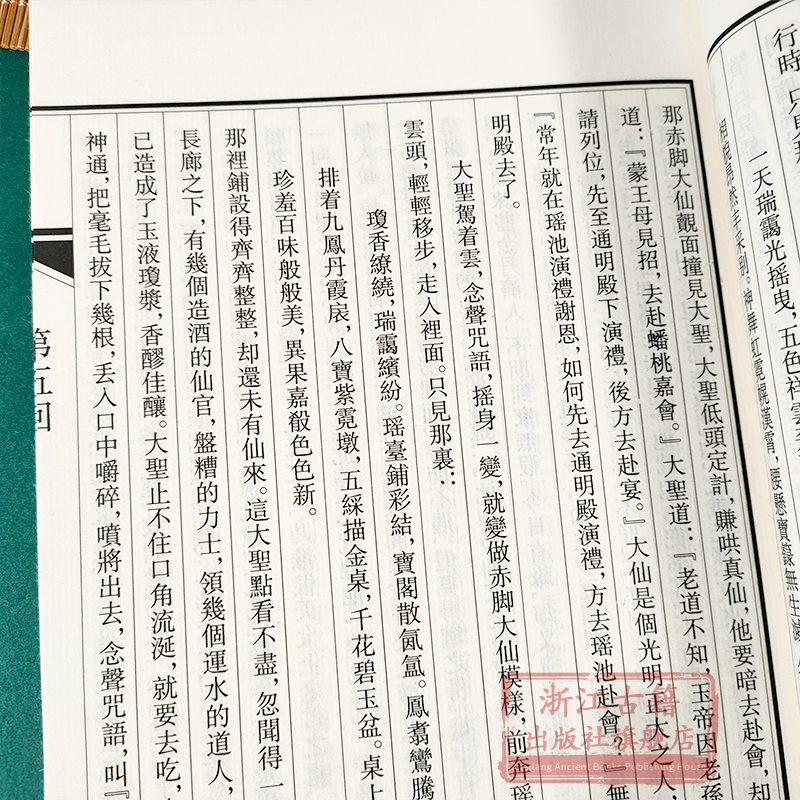 行時，只見那
一天瑞靄光摇曳，五色祥雲
相貌昂然丰采别。神舞虹霓幌漢霄，腰懸寶籙無生滅
那赤脚大仙覿面撞見大聖，大聖低頭定計，賺哄真仙，他要暗去赴會，却
道：『蒙王母見招，去赴蟠桃嘉會。』大聖道：『老道不知，玉帝因老孫
請列位，先至通明殿下演禮，後方去赴宴。』大仙是個光明正大之人，
『常年就在瑶池演禮謝恩，如何先去通明殿演禮，方去瑶池赴會？』無
明殿去了。
大聖駕着雲，念聲咒語，摇身一變，就變做赤脚大仙模樣，前奔瑶
雲頭，輕輕移步，走入裡面。只見那裏：
瓊香繚繞，瑞靄繽紛。瑶臺鋪彩結，寶閣散氤氲。鳳翥鸞騰
排着九鳳丹霞扆，八寶紫霓墩，五綵描金桌，千花碧玉盆。桌上
珍羞百味般般美，異果嘉殽色色新。
那裡鋪設得齊齊整整，却還未有仙來。這大聖點看不盡，忽聞得一
長廊之下，有幾個造酒的仙官，盤糟的力士，領幾個運水的道人，
已造成了玉液瓊漿，香醪佳釀。大聖止不住口角流涎，就要去吃，
神通，把毫毛拔下幾根，丢入口中嚼碎，噴將出去，念聲咒語，叫『
第五回
浙江古籍
出版社旗舰店
Zhejiang Ancient Books Publishing House